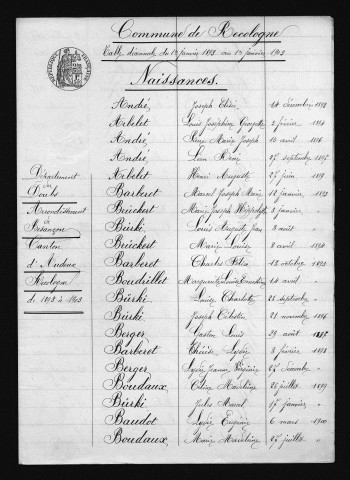 Commune de Recologne
Table décennale du 1er janvier 1893 au 1er janvier 1903
Naissances.
Département
du
Doubs
Arrondissement
de
Besançon
Canton
d'Audeux
Recologne
de 1893 à 1903
André, Joseph 24 Décembre 1893
Arbelet Louis Joséphine Georgette 2 février 1894
André, Marie Joseph 15 avril 1896
André, Léon 27 septembre 1897
Arbelet Henri Auguste 27 juin 1899
Barberet Marcel Joseph Marie 12 janvier 1893
Briickert Marie Joseph Hippolyte 3 janvier "
Bürki, Louis Auguste Jean 8 août "
Briickert Marie Louise 8 avril 1894
Barberet Charles Félix 13 octobre 1893
Boudrillet Marguerite Louise Ernestine
Bürki Louise Charlotte 25 septembre "
Bürki Joseph Célestin 21 novembre 1894
Berger Gaston Louis 29 août 1897
Barberet Thérèse 3 février 1898
Berger Jeanne Virginie 27 Décembre "
Boudaux Madeleine 26 juillet 1899
Bürki Jules Marcel 17 janvier "
Baudot Eugénie 6 mars 1900
Boudaux Marie Madeleine juillet "